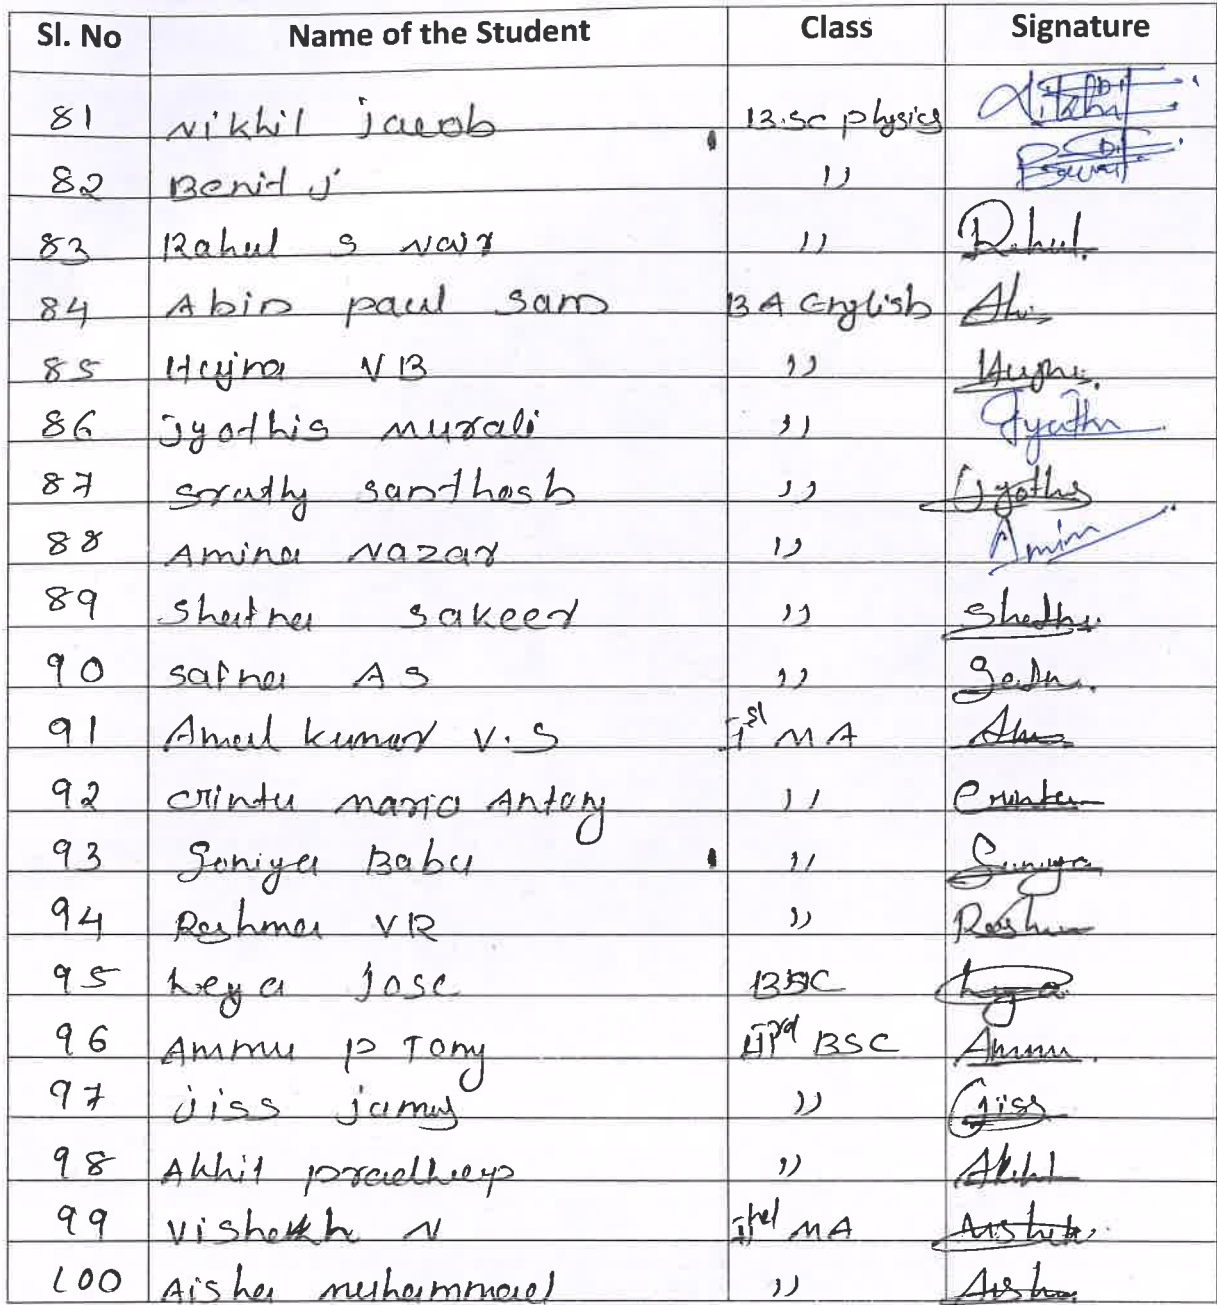 Sl. No Name of the Student Class Signature
81 Nikhil Jacob B.sc physics Nikhil
82 Benit J ,, Benit
83 Rahul S Nair ,, Rahul
84 Abin paul Sam B A English Abin
85 Hajna V B ,, Hajna
86 Jyothis Murali ,, Jyothi
87 Sruthy Santhosh ,, Jyothis
88 Amina Nazar ,, Amina
89 Shetna Sakeer ,,
90 Safna A S ,,
91 Amal kumar V.S Ist MA
92 Crintu maria Antony ,, Crintu
93 Soniya Babu ,, Soniya
94 Reshma V R ,,
95 Leya Jose BSC Leya
96 Ammu P Tony IIIrd BSC Ammu
97 Jiss jamy ,, Jiss
98 Akhil pradheep ,, Akhil
99 Vishakh N IInd MA
100 Aisha muhammad ,, Aisha